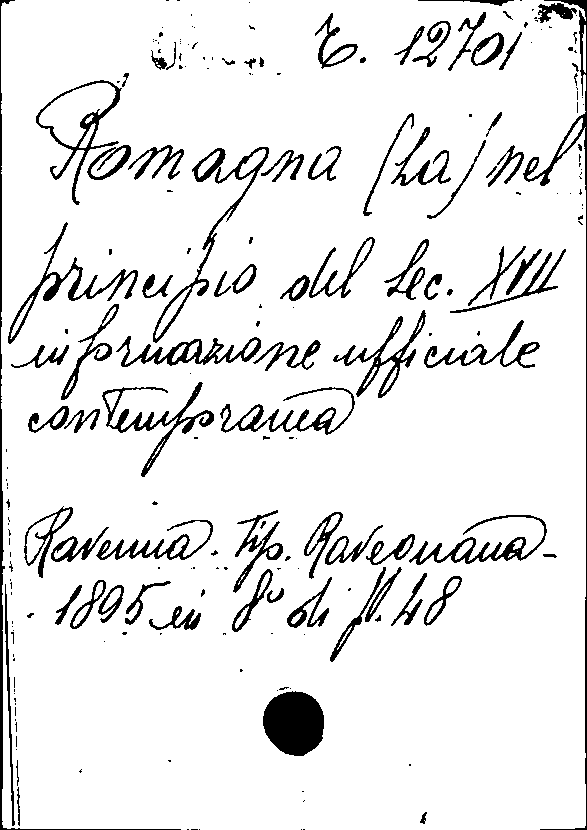 T. 12701
Romagna (La) nel
principio del Sec. XVII
informazione ufficiale
contemporanea
Ravenna. Tip. Ravegnana -
1895 in 8º di p. 48